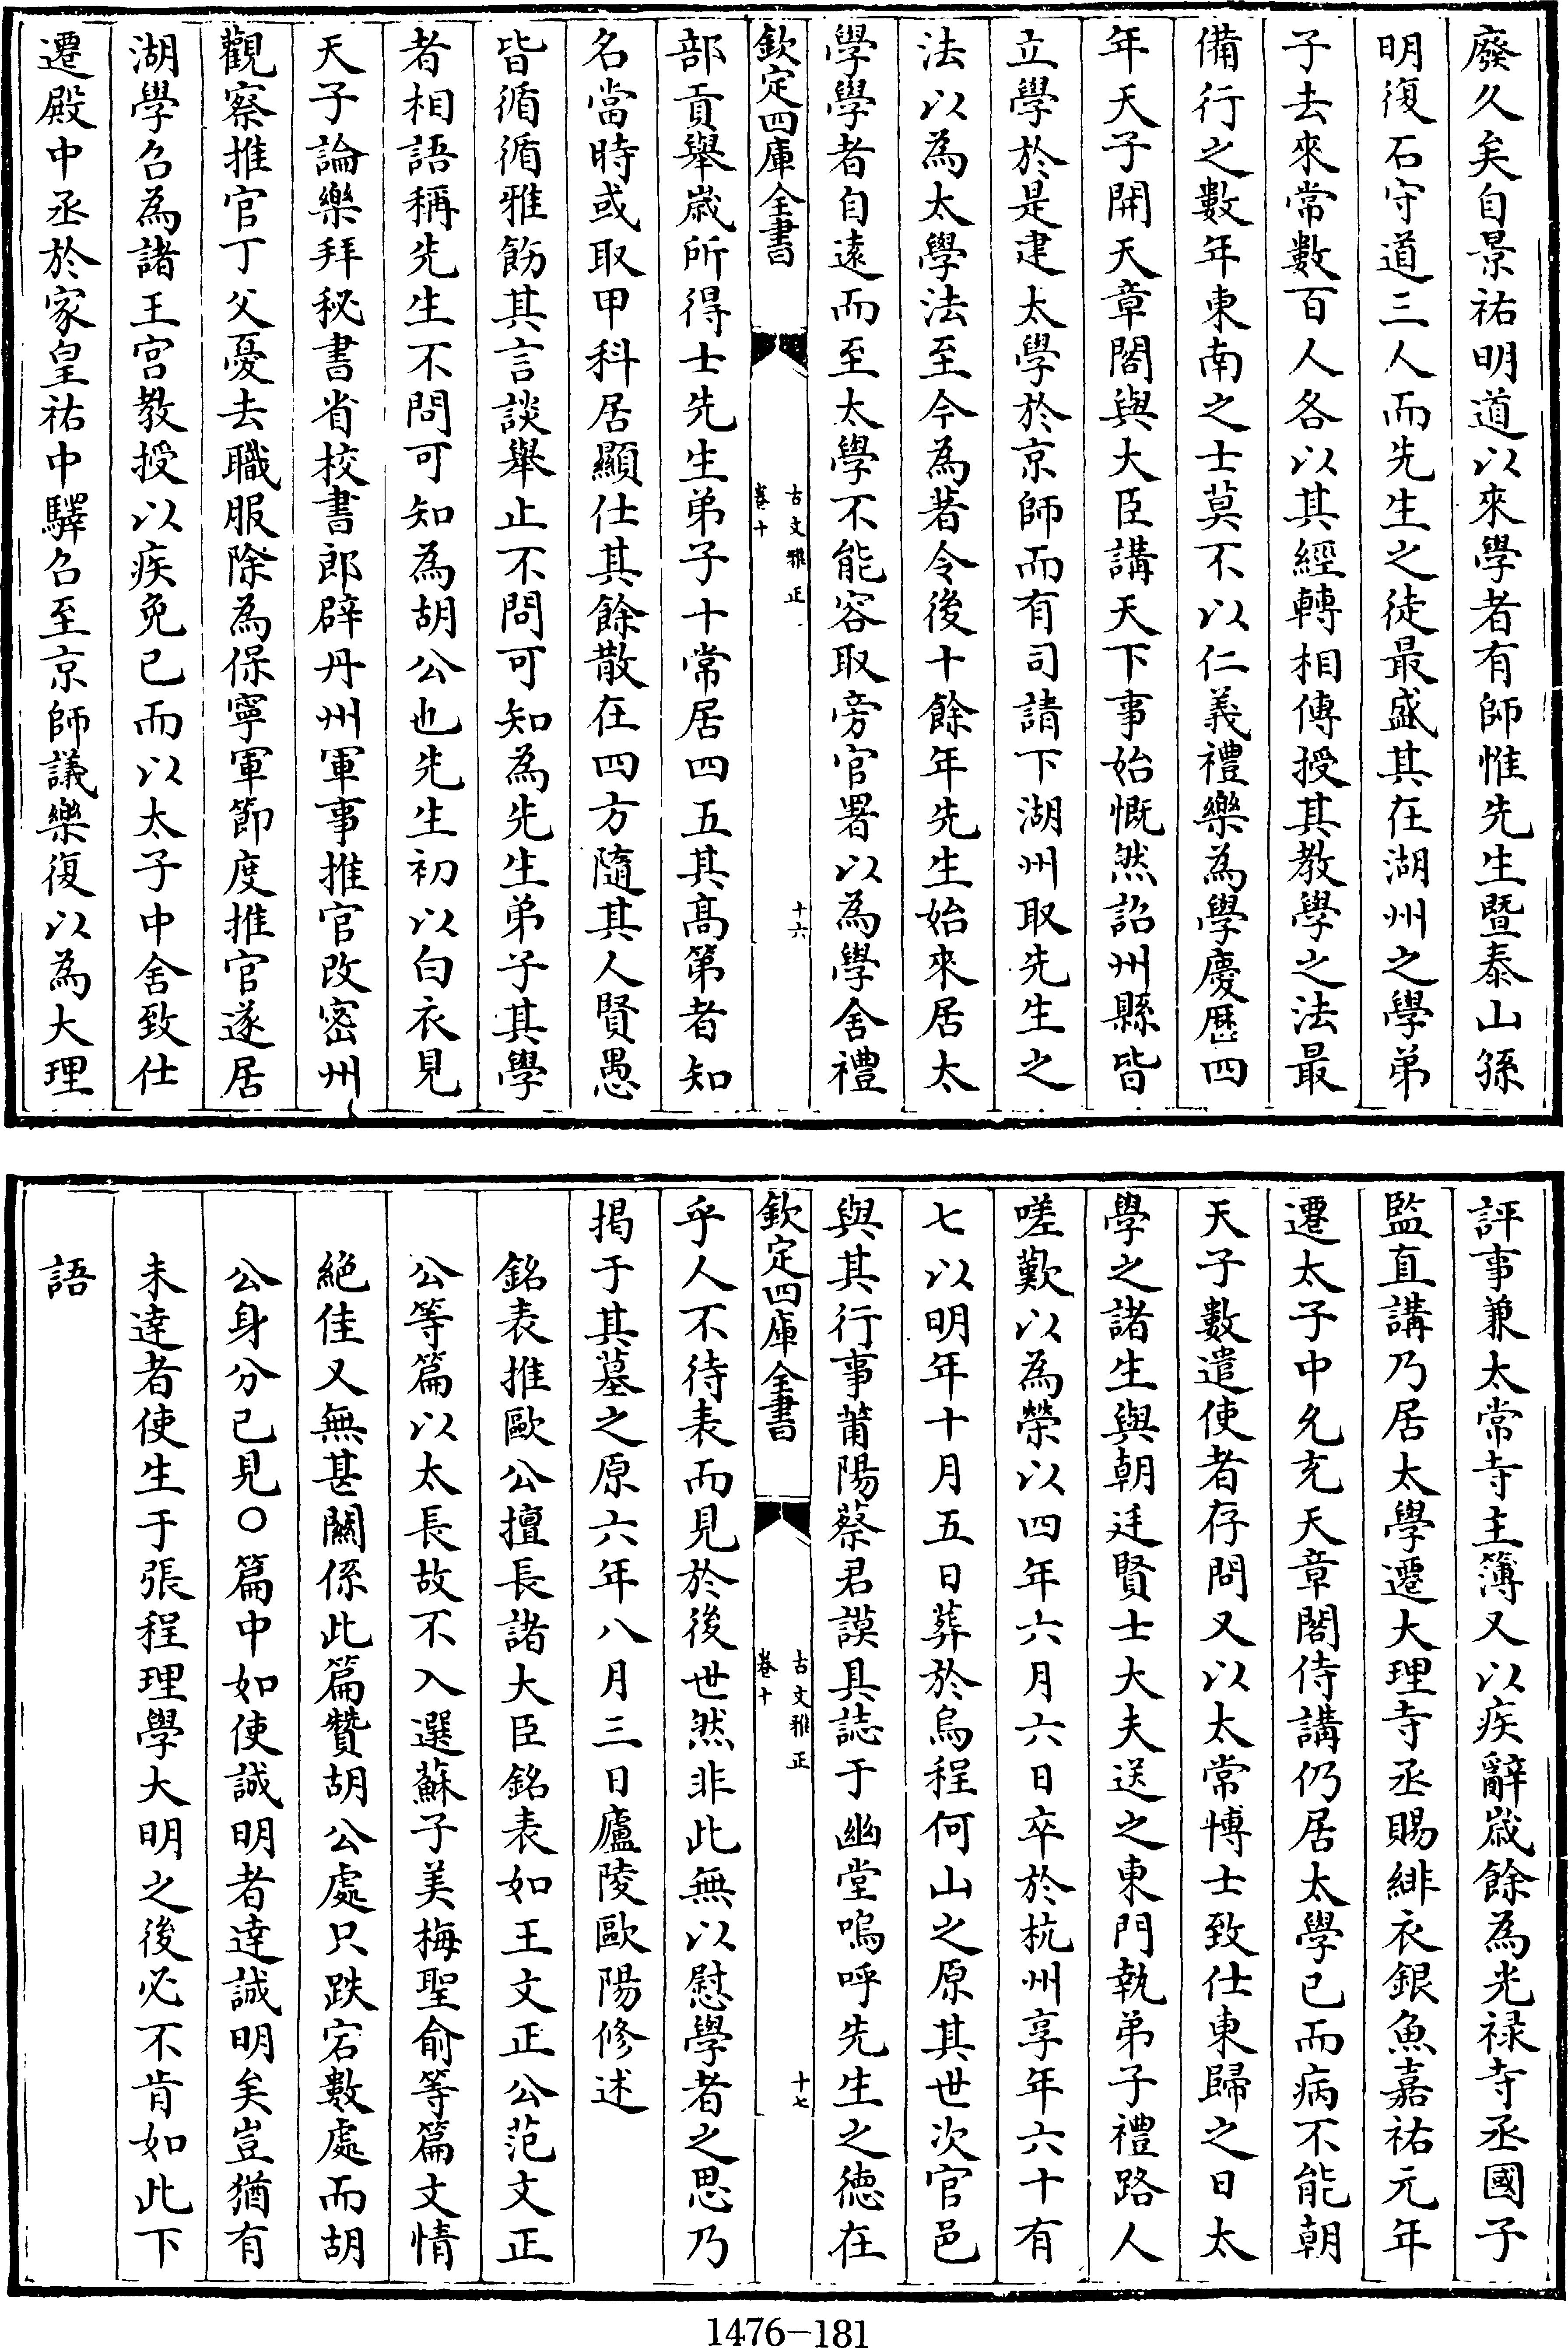 廢久矣自景祐明道以來學者有師惟先生暨泰山孫
明復石守道三人而先生之徒最盛其在湖州之學弟
子去來常數百人各以其經轉相傳授其教學之法最
備行之數年東南之士莫不以仁義禮樂為學慶厯四
年天子開天章閣與大臣講天下事始慨然詔州縣皆
立學於是建太學於京師而有司請下湖州取先生之
法以為太學法至今為著令後十餘年先生始來居太
學學者自遠而至太學不能容取旁官署以為學舍禮
欽定四庫全書
古文雅正
卷十
十六
部貢舉嵗所得士先生弟子十常居四五其髙第者知
名當時或取甲科居顯仕其餘散在四方隨其人賢愚
皆循循雅飭其言談舉止不問可知為先生弟子其學
者相語稱先生不問可知為胡公也先生初以白衣見
天子論樂拜秘書省校書郎辟丹州軍事推官改密州
觀察推官丁父憂去職服除為保寧軍節度推官遂居
湖學召為諸王宫教授以疾免已而以太子中舍致仕
遷殿中丞於家皇祐中驛召至京師議樂復以為大理
評事兼太常寺主簿又以疾辭嵗餘為光禄寺丞國子
監直講乃居太學遷大理寺丞賜緋衣銀魚嘉祐元年
遷太子中允充天章閣侍講仍居太學已而病不能朝
天子數遣使者存問又以太常博士致仕東歸之日太
學之諸生與朝廷賢士大夫送之東門執弟子禮路人
嗟歎以為榮以四年六月六日卒於杭州享年六十有
七以明年十月五日葬於烏程何山之原其世次官邑
與其行事莆陽蔡君謨具誌于幽堂嗚呼先生之德在
欽定四庫全書
古文雅正
卷十
十七
乎人不待表而見於後世然非此無以慰學者之思乃
揭于其墓之原六年八月三日廬陵歐陽修述
銘表推歐公擅長諸大臣銘表如王文正公范文正
公等篇以太長故不入選蘇子美梅聖俞等篇文情
絶佳又無甚闗係此篇贊胡公處只跌宕數處而胡
公身分已見○篇中如使誠明者達誠明矣豈猶有
未達者使生于張程理學大明之後必不肯如此下
語
1476-181